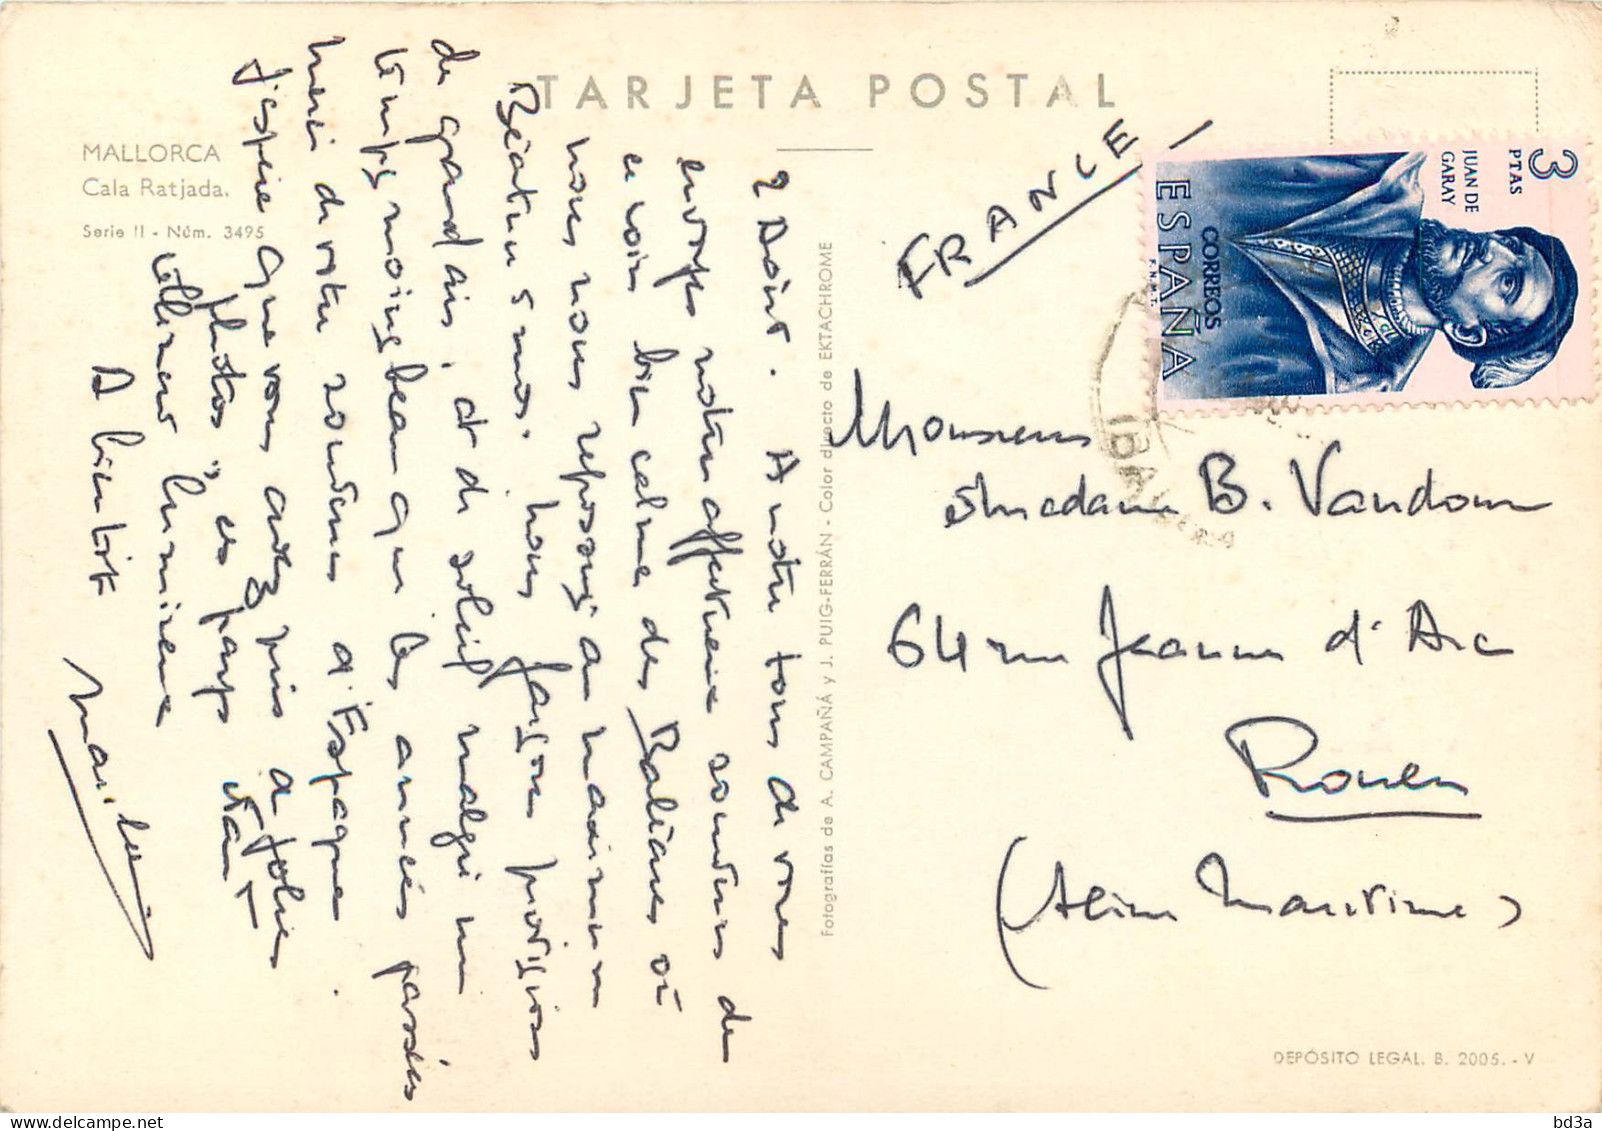 TARJETA POSTAL
MALLORCA
Cala Ratjada.
Serie II - Núm. 3495
2 Août. A notre tous de vous
envoyer notre affectueux souvenir de
ce coin bien calme des Baléares où
nous nous reposons au maximum
Béatrice & moi. Nous faisons provision
de grand air, et de soleil malgré un
temps moins beau que les années passées
Merci de votre souvenir d'Espagne.
J'espère que vous avez pris de jolies
photos, ce pays étant
tellement lumineux
A bientôt
Fotografías de A. CAMPAÑÁ y J. PUIG-FERRÁN - Color directo de EKTACHROME
FRANCE
3
PTAS
JUAN DE
GARAY
CORREOS
F.N.M.T.
ESPAÑA
Monsieur
& Madame B. Vandoum
64 rue Jeanne d'Arc
Rouen
(Seine Maritime)
DEPÓSITO LEGAL. B. 2005. - V
bd3a